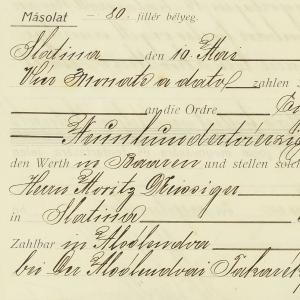 Másolat – 80. fillér bélyeg.
Slatina den 19. Mai
Vier Monate a dato zahlen
an die Ordre
Neunhundertvierzig
den Werth in Baaren und stellen solch
Herrn Moritz Meissiger
in Slatina
Zahlbar in Alsólendva
bei der Alsólendvai Takarék